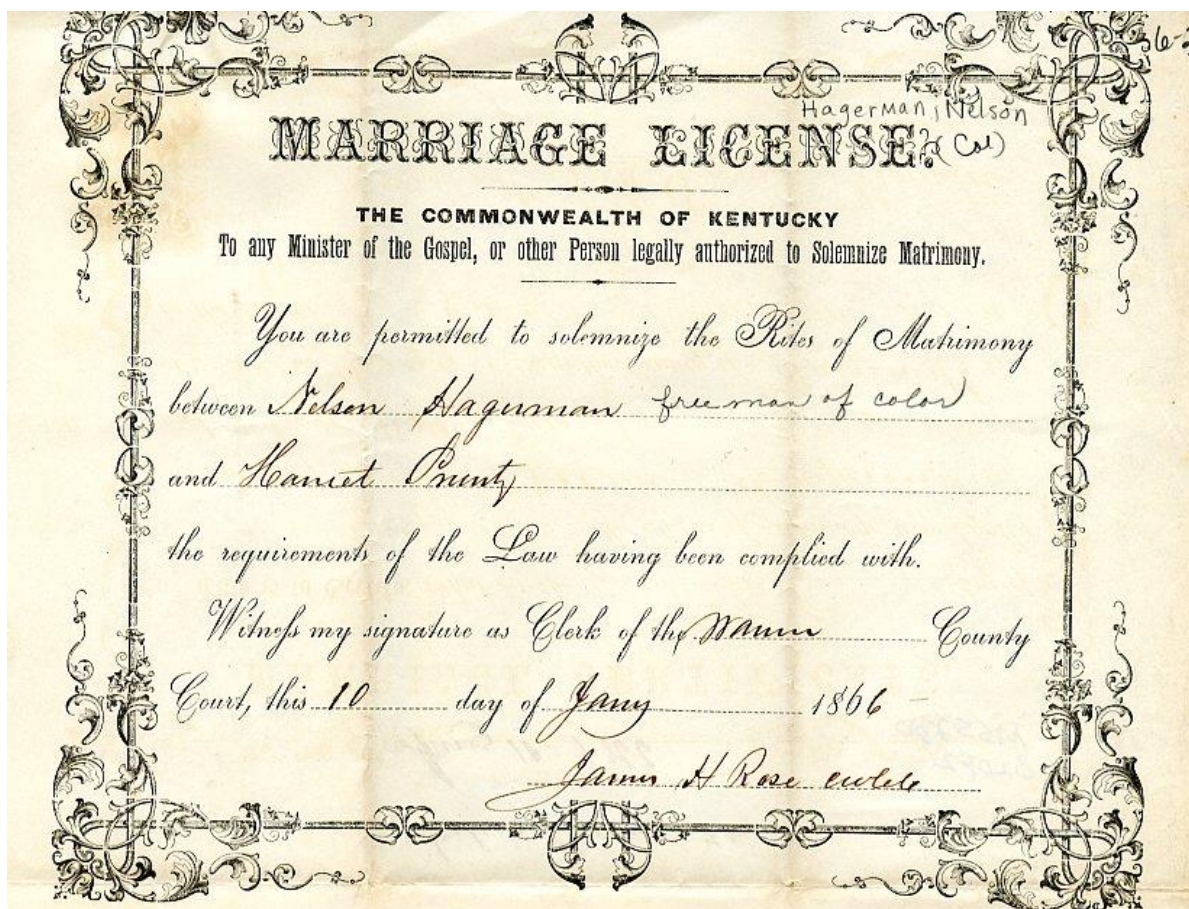 6-
Hagerman, Nelson
MARRIAGE LICENSE.
(Col)
THE COMMONWEALTH OF KENTUCKY
To any Minister of the Gospel, or other Person legally authorized to Solemnize Matrimony.
You are permitted to solemnize the Rites of Matrimony
between Nelson Hagerman free man of color
and Harriet
the requirements of the Law having been complied with.
Witness my signature as Clerk of the Warren County
Court, this 10 day of Jany 1866
James H Rose